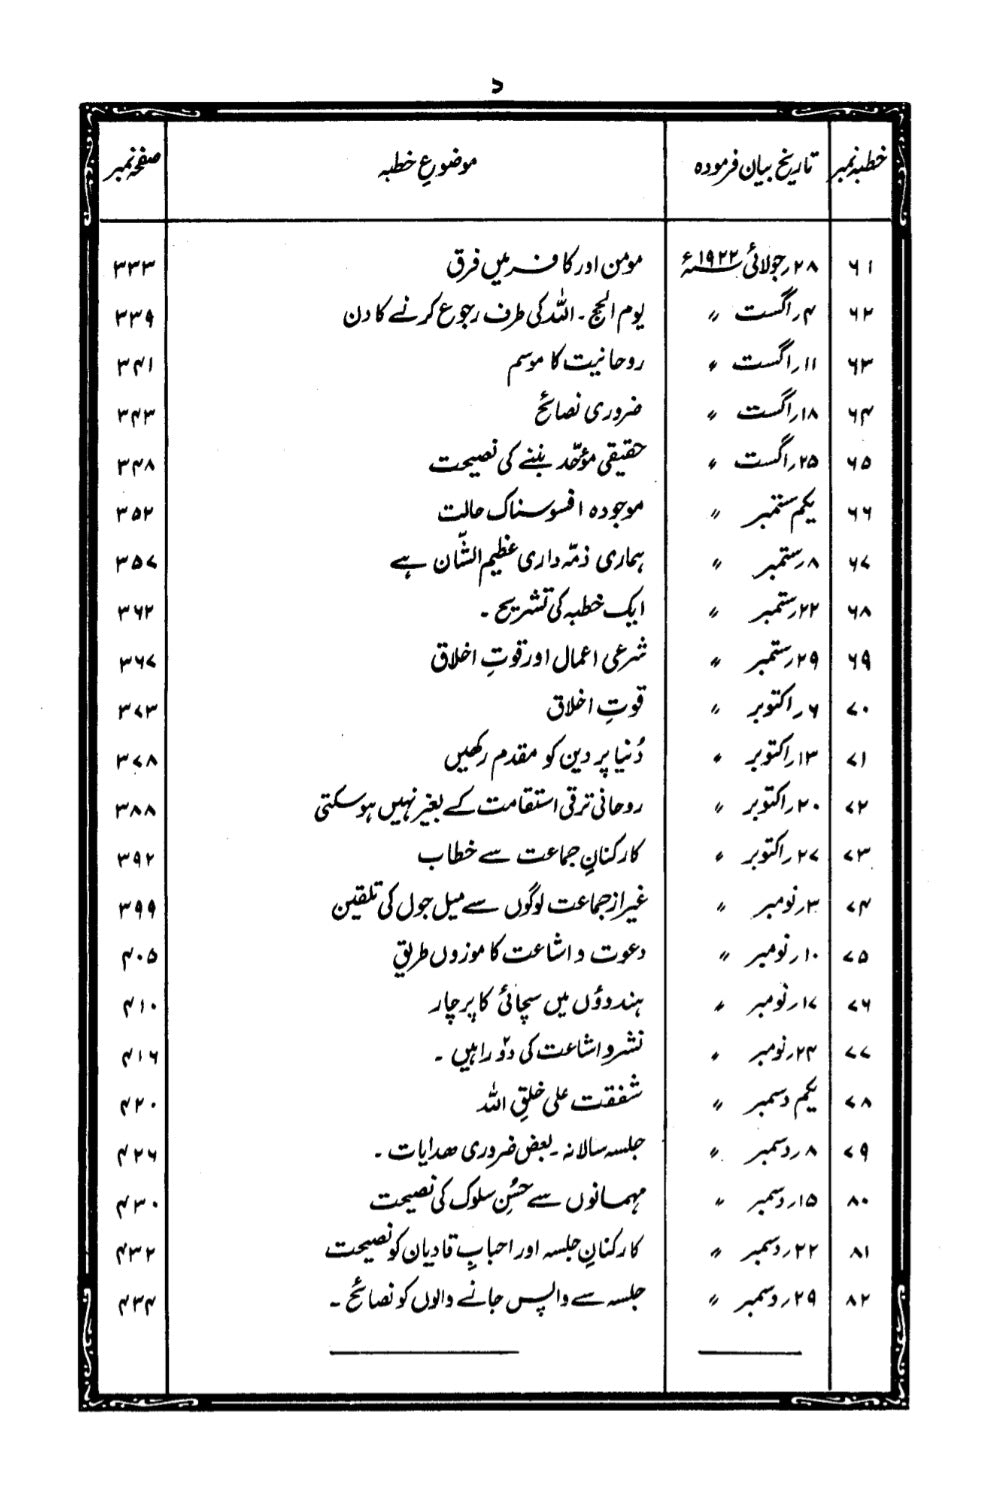 د
خطبہ نمبر تاریخ بیان فرمودہ موضوعِ خطبہ صفحہ نمبر
۶۱ ۲۸؍جولائی ۱۹۲۲ء مومن اور کافر میں فرق ۳۳۳
۶۲ ۴؍اگست 〃 یوم الحج۔ اللہ کی طرف رجوع کرنے کا دن ۳۳۹
۶۳ ۱۱؍اگست 〃 روحانیت کا موسم ۳۴۱
۶۴ ۱۸؍اگست 〃 ضروری نصائح ۳۴۳
۶۵ ۲۵؍اگست 〃 حقیقی مؤحّد بننے کی نصیحت ۳۴۸
۶۶ یکم ستمبر 〃 موجودہ افسوسناک حالت ۳۵۲
۶۷ ۸؍ستمبر 〃 ہماری ذمّہ داری عظیم الشّان ہے ۳۵۷
۶۸ ۲۲؍ستمبر 〃 ایک خطبہ کی تشریح۔ ۳۶۲
۶۹ ۲۹؍ستمبر 〃 شرعی اعمال اور قوتِ اخلاق ۳۶۷
۷۰ ۶؍اکتوبر 〃 قوتِ اخلاق ۳۷۳
۷۱ ۱۳؍اکتوبر 〃 دُنیا پر دین کو مقدم رکھیں ۳۷۸
۷۲ ۲۰؍اکتوبر 〃 روحانی ترقی استقامت کے بغیر نہیں ہوسکتی ۳۸۸
۷۳ ۲۷؍اکتوبر 〃 کارکنانِ جماعت سے خطاب ۳۹۲
۷۴ ۳؍نومبر 〃 غیر از جماعت لوگوں سے میل جول کی تلقین ۳۹۹
۷۵ ۱۰؍نومبر 〃 دعوت و اشاعت کا موزوں طریق ۴۰۵
۷۶ ۱۷؍نومبر 〃 ہندوؤں میں سچائی کا پرچار ۴۱۰
۷۷ ۲۴؍نومبر 〃 نشرو اشاعت کی دو راہیں۔ ۴۱۶
۷۸ یکم دسمبر 〃 شفقت علی خلقِ اللہ ۴۲۰
۷۹ ۸؍دسمبر 〃 جلسہ سالانہ۔ بعض ضروری ھدایات۔ ۴۲۶
۸۰ ۱۵؍دسمبر 〃 مہمانوں سے حُسنِ سلوک کی نصیحت ۴۳۰
۸۱ ۲۲؍دسمبر 〃 کارکنانِ جلسہ اور احبابِ قادیان کو نصیحت ۴۳۲
۸۲ ۲۹؍دسمبر 〃 جلسہ سے واپس جانے والوں کو نصائح۔ ۴۳۴